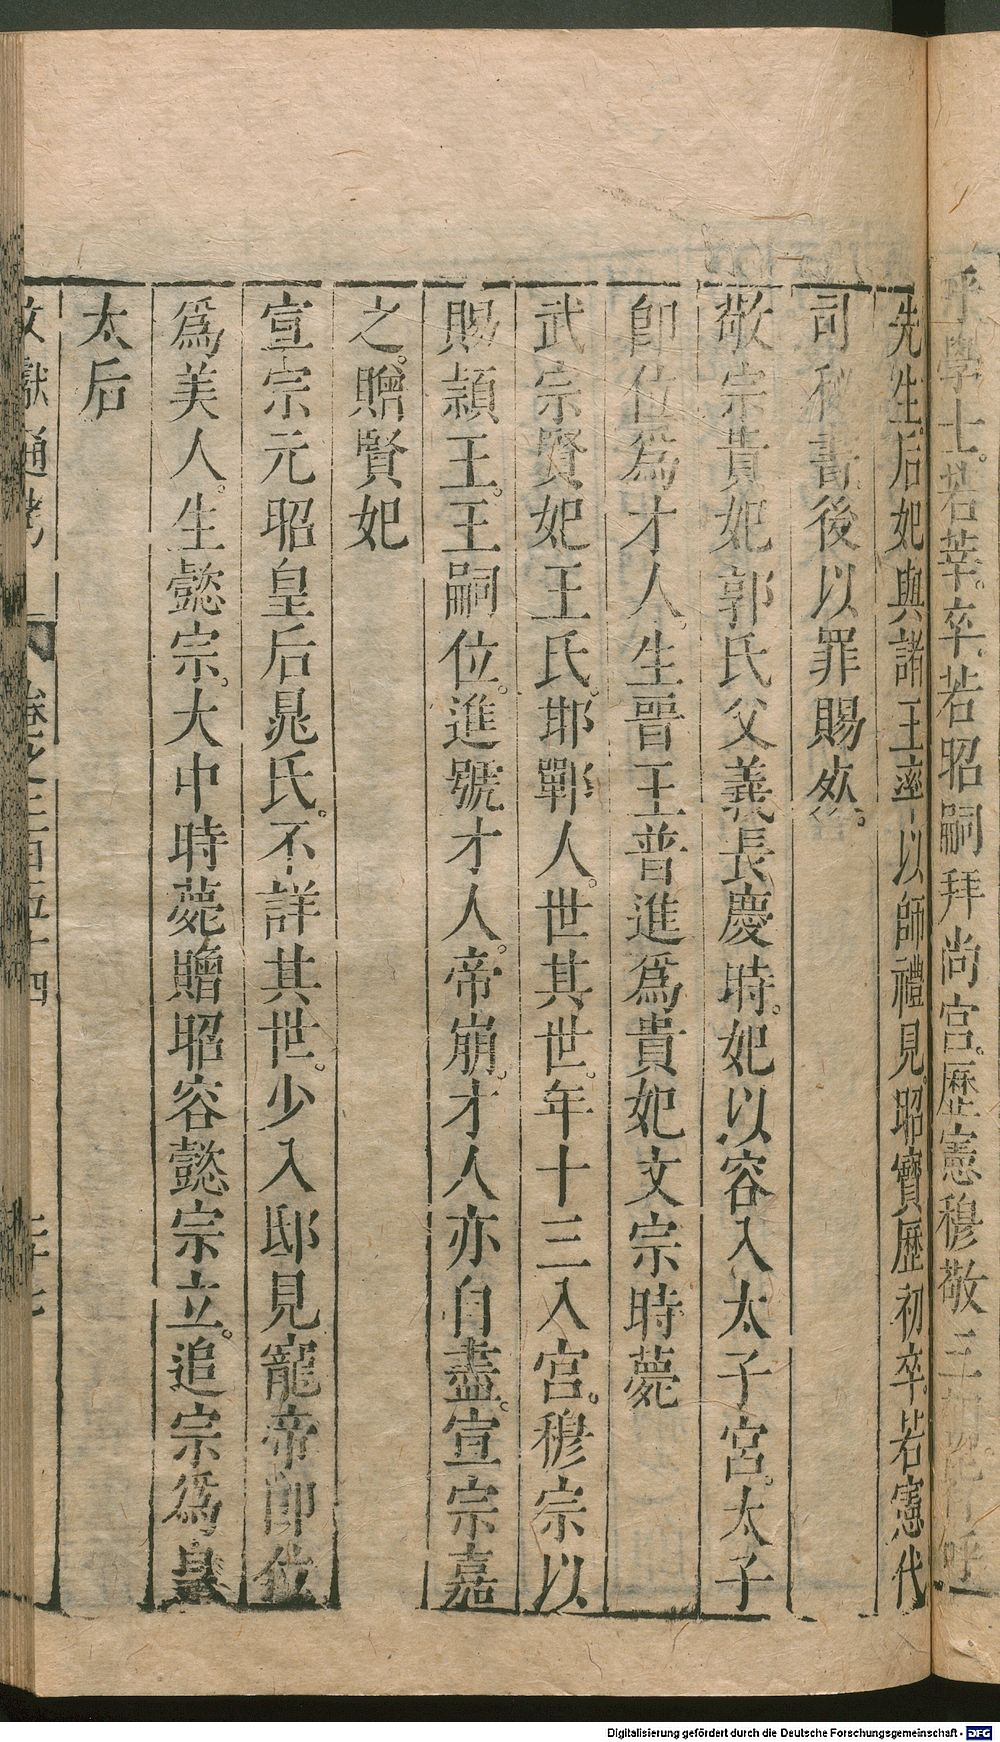 呼學士若莘卒若昭嗣拜尚宮歷憲穆敬三
呼
先生后妃與諸王率以師禮見昭寶歷初卒若憲代
司秘書後以罪賜死
敬宗貴妃郭氏父義長慶時妃以容入太子宮太子
卽位為才人生晉王普進為貴妃文宗時薨
武宗賢妃王氏邯鄲人世其世年十三入宮穆宗以
賜穎王王嗣位進號才人帝崩才人亦自盡宣宗嘉
之贈賢妃
宣宗元昭皇后晁氏不詳其世少入邸見寵帝卽位
為美人生懿宗大中時薨贈昭容懿宗立追宗為皇
太后
文獻通考 卷之二百五十四
Digitalisierung gefördert durch die Deutsche Forschungsgemeinschaft - DFG